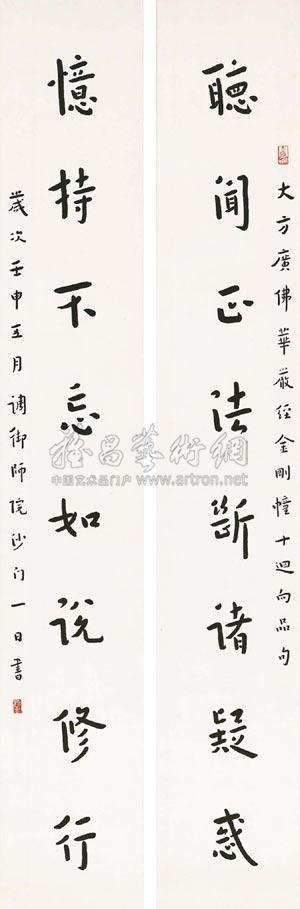 大方廣佛華嚴經金剛幢十迴向品句
聽聞正法斷諸疑惑
憶持不忘如說修行
歲次壬申五月調御師院沙門一日書
雅昌藝術網
中国艺术品门户 www.artron.net